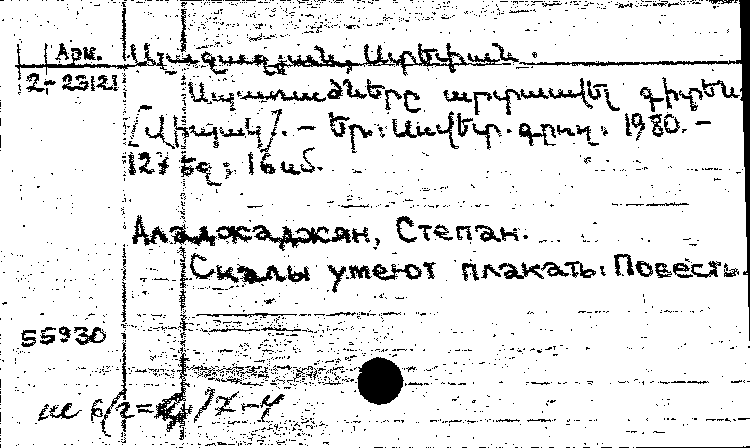 Арм.
2-23121
Ալաջաջյան, Ստեփան.
արտասվել գիտեն:
[Վիպակ]. - Եր.: Սովետ. գրող, 1980. -
127 էջ; 16 սմ.
Аладжаджян, Степан.
Скалы умеют плакать: Повесть.
55930